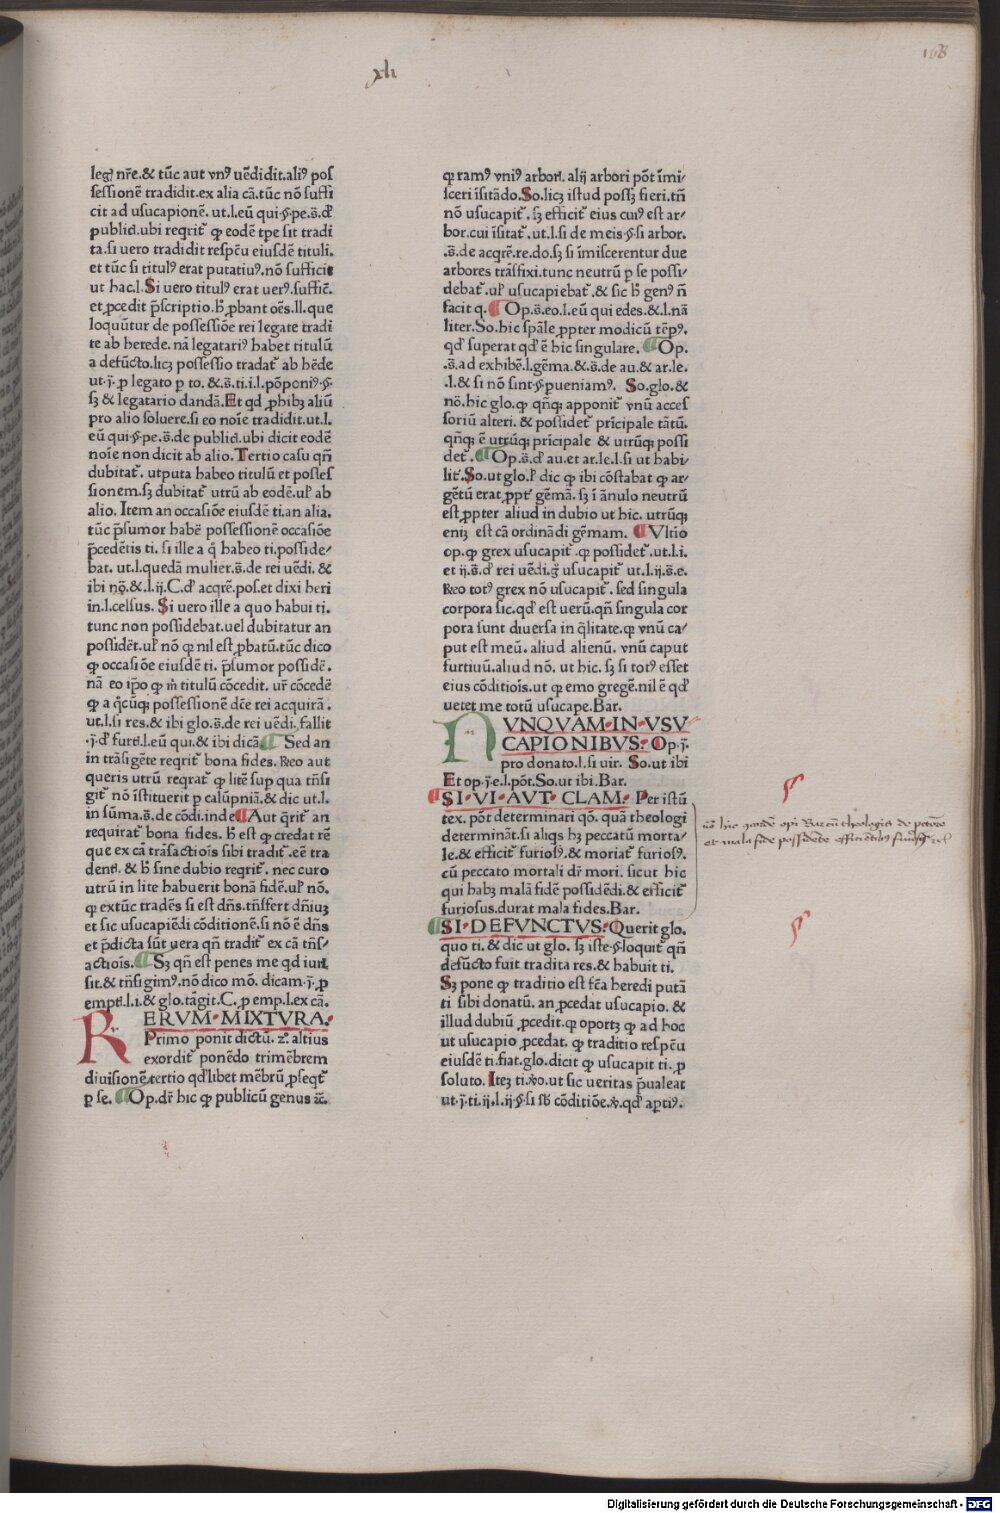 xli
168
legẜ nr̄e.& tūc aut vnꝰ uēdidit.aliꝰ pos
sessionē tradidit.ex alia cā.tūc nō suffi
cit ad usucapionē. ut.l.eū qui.§.pe.s̄.d'
publici.ubi reqrit̄ ꝙ eodē tp̄e sit tradi
ta.si uero tradidit respc̄u eiusdē tituli.
et tūc si titulꝰ erat putatiuꝰ.nō sufficit
ut hac.l.Si uero titulꝰ erat uerꝰ.suffic̄.
et ꝓcedit p̄scriptio.h̄ ꝓbant oēs.ll.que
loquūtur de possessiōe rei legate tradi
te ab herede. nā legatariꝰ habet titulū
a defūcto.licꝫ possessio tradat̄ ab hēde
ut.j̄.ꝓ legato p to.&.s̄.ti.i.l.pōponiꝰ.§.
sꝫ & legatario dandā.Et qd ꝓhibꝫ aliū
pro alio soluere.si eo noīe tradidit.ut.l.
eū qui.§.pe.s̄.de publici.ubi dicit eodē
noīe non dicit ab alio.Tertio casu qn̄
dubitat̄. utputa habeo titulū et posses
sionem.sꝫ dubitat̄ utrū ab eodē.ul' ab
alio. Item an occasiōe eiusdē ti.an alia.
tūc p̄sumor habē possessionē occasiōe
p̄cedētis ti. si ille a q̄ habeo ti.posside/
bat. ut.l.quedā mulier.s̄.de rei uēdi. &
ibi nō.&.l.ij.C.d' acqrē.pos.et dixi heri
in.l.celsus. Si uero ille a quo habui ti.
tunc non possidebat.uel dubitatur an
possidēt.ul' nō ꝙ nil est ꝓbatū.tūc dico
ꝙ occasi ōe eiusdē ti. p̄sumor possidē.
nā eo ip̄o ꝙ m̄ titulū cōcedit. ur̄ cōcedē
ꝙ a q̄cūqꝫ possessionē dc̄e rei acquirā.
ut.l.si res.& ibi glo.s̄.de rei uēdi. fallit
.j̄.d' furti.l.eū qui.& ibi dicā. Sed an
in trāsigēte reqrit̄ bona fides. Reo aut
queris utrū reqrat̄ ꝙ litē sup qua trn̄si
git̄ nō īstituerit p calūpniā.& dic ut.l.
in sūma.s̄.de cōdi.inde Aut qrit̄ an
requirat̄ bona fides. h̄ est ꝙ credat rē
que ex cā trāsactiois sibi tradit̄.eē tra
denti. & h̄ sine dubio reqrit̄. nec curo
utrū in lite habuerit bonā fidē.ul' nō.
ꝙ extūc tradēs si est dn̄s.trn̄sfert dn̄iuꝫ
et sic usucapiēdi cōditionē.si nō ē dn̄s
et p̄dicta sūt uera qn̄ tradit̄ ex cā trn̄s/
actiois. Sꝫ qn̄ est penes me qd iuri
sit.& trn̄sigimꝰ.nō dico mō. dicam.j̄.ꝓ
empti.l.i.& glo.tāgit.C.ꝓ emp.l.ex cā.
RERVM MIXTVRA.
Primo ponit dictū. zº. altius
exordit̄ ponēdo trimēbrem
diuisionē tertio qd'libet mēbrū ꝓseqt̄
p se. Op.dr̄ hic ꝙ publicū genus ⁊c̄.
ꝙ ramꝰ vniꝰ arbori. alij arbori pōt īmi/
sceri īsitādo.So.licꝫ istud possꝫ fieri.tn̄
nō usucapit̄. sꝫ efficit̄ eius cuiꝰ est ar/
bor.cui īsitat̄.ut.l.si de meis.§.si arbor.
.s̄.de acqrē.re.do.sꝫ si īmiscerentur due
arbores trāsfixi.tunc neutrū p se possi/
debat̄.ul' usucapiebat̄.& sic h̄ genꝰ n̄
facit q. Op.s̄.eo.l.eū qui edes.&.l.nā
liter.So.hic spāle ꝓpter modicū tēpꝰ.
qd' superat qd' ē hic singulare. Op.
.s̄.ad exhibē.l.gēma.&.s̄.de au.& ar.le.
.l.& si nō sint.§.pueniamꝰ. So.glo.&
nō.hic glo.ꝙ qn̄qꝫ apponit̄ vnū acces
soriū alteri. & possidet̄ prīcipale tātū.
qn̄qꝫ ē utrūqꝫ prīcipale & utrūqꝫ possi
det̄. Op.s̄.d' au.et ar.le.l.si ut habi/
lit̄.So.ut glo.l' dic ꝙ ibi cōstabat ꝙ ar/
gētū erat ꝓpt̄ gēmā. sꝫ ī ānulo neutrū
est ꝓpter aliud in dubio ut hic. utrūqꝫ
enīꝫ est cā ordinādi gēmam. Vltīo
op.ꝙ grex usucapit̄ .ꝙ possidet̄.ut.l.i.
et ij.s̄.d' rei uēdi.g̊ usucapit̄ ut.l.ij.s̄.e.
Reo totꝰ grex nō usucapit̄. sed singula
corpora sic.qd' est uerū.qn̄ singula cor
pora sunt diuersa in q̄litate.ꝙ vnū ca/
put est meū. aliud alienū. vnū caput
furtiuū.aliud nō. ut hic. sꝫ si totꝰ esset
eius cōditiois.ut ꝙ emo gregē.nil ē qd'
uetet me totū usucape.Bar.
NVNQVAM IN VSV
CAPIONIBVS. Op.j̄.
pro donato.l.si uir. So.ut ibi
Et op.j̄.e.l.pōt.So.ut ibi.Bar.
SI VI AVT CLAM. Per istū
tex. pōt determinari qō. quā theologi
determināt.si aliqs hꝫ peccatū morta/
le.& efficit̄ furiosꝰ.& moriat̄ furiosꝰ.
cū peccato mortali dr̄ mori. sicut hic
qui habꝫ malā fidē possidēdi.& efficit̄
furiosus.durat mala fides.Bar.
SI DEFVNCTVS. Querit glo.
quo ti. & dic ut glo. sꝫ iste.§.loquit̄ qn̄
defūcto fuit tradita res.& habuit ti.
Sꝫ pone ꝙ traditio est fc̄a heredi putā
ti sibi donatū. an ꝓcedat usucapio. &
illud dubiū ꝓcedit.ꝙ oportꝫ ꝙ ad hoc
ut usucapio ꝓcedat. ꝙ traditio respc̄u
eiusdē ti.fiat.glo.dicit ꝙ usucapit ti. ꝓ
soluto. Iteꝫ ti.v̊o.ut sic veritas p̄ualeat
ut.j̄.ti.ij.l.ij.§.si sb̄ cōditiōe.v̊.qd' aptiꝰ.
Digitalisierung gefördert durch die Deutsche Forschungsgemeinschaft - DFG